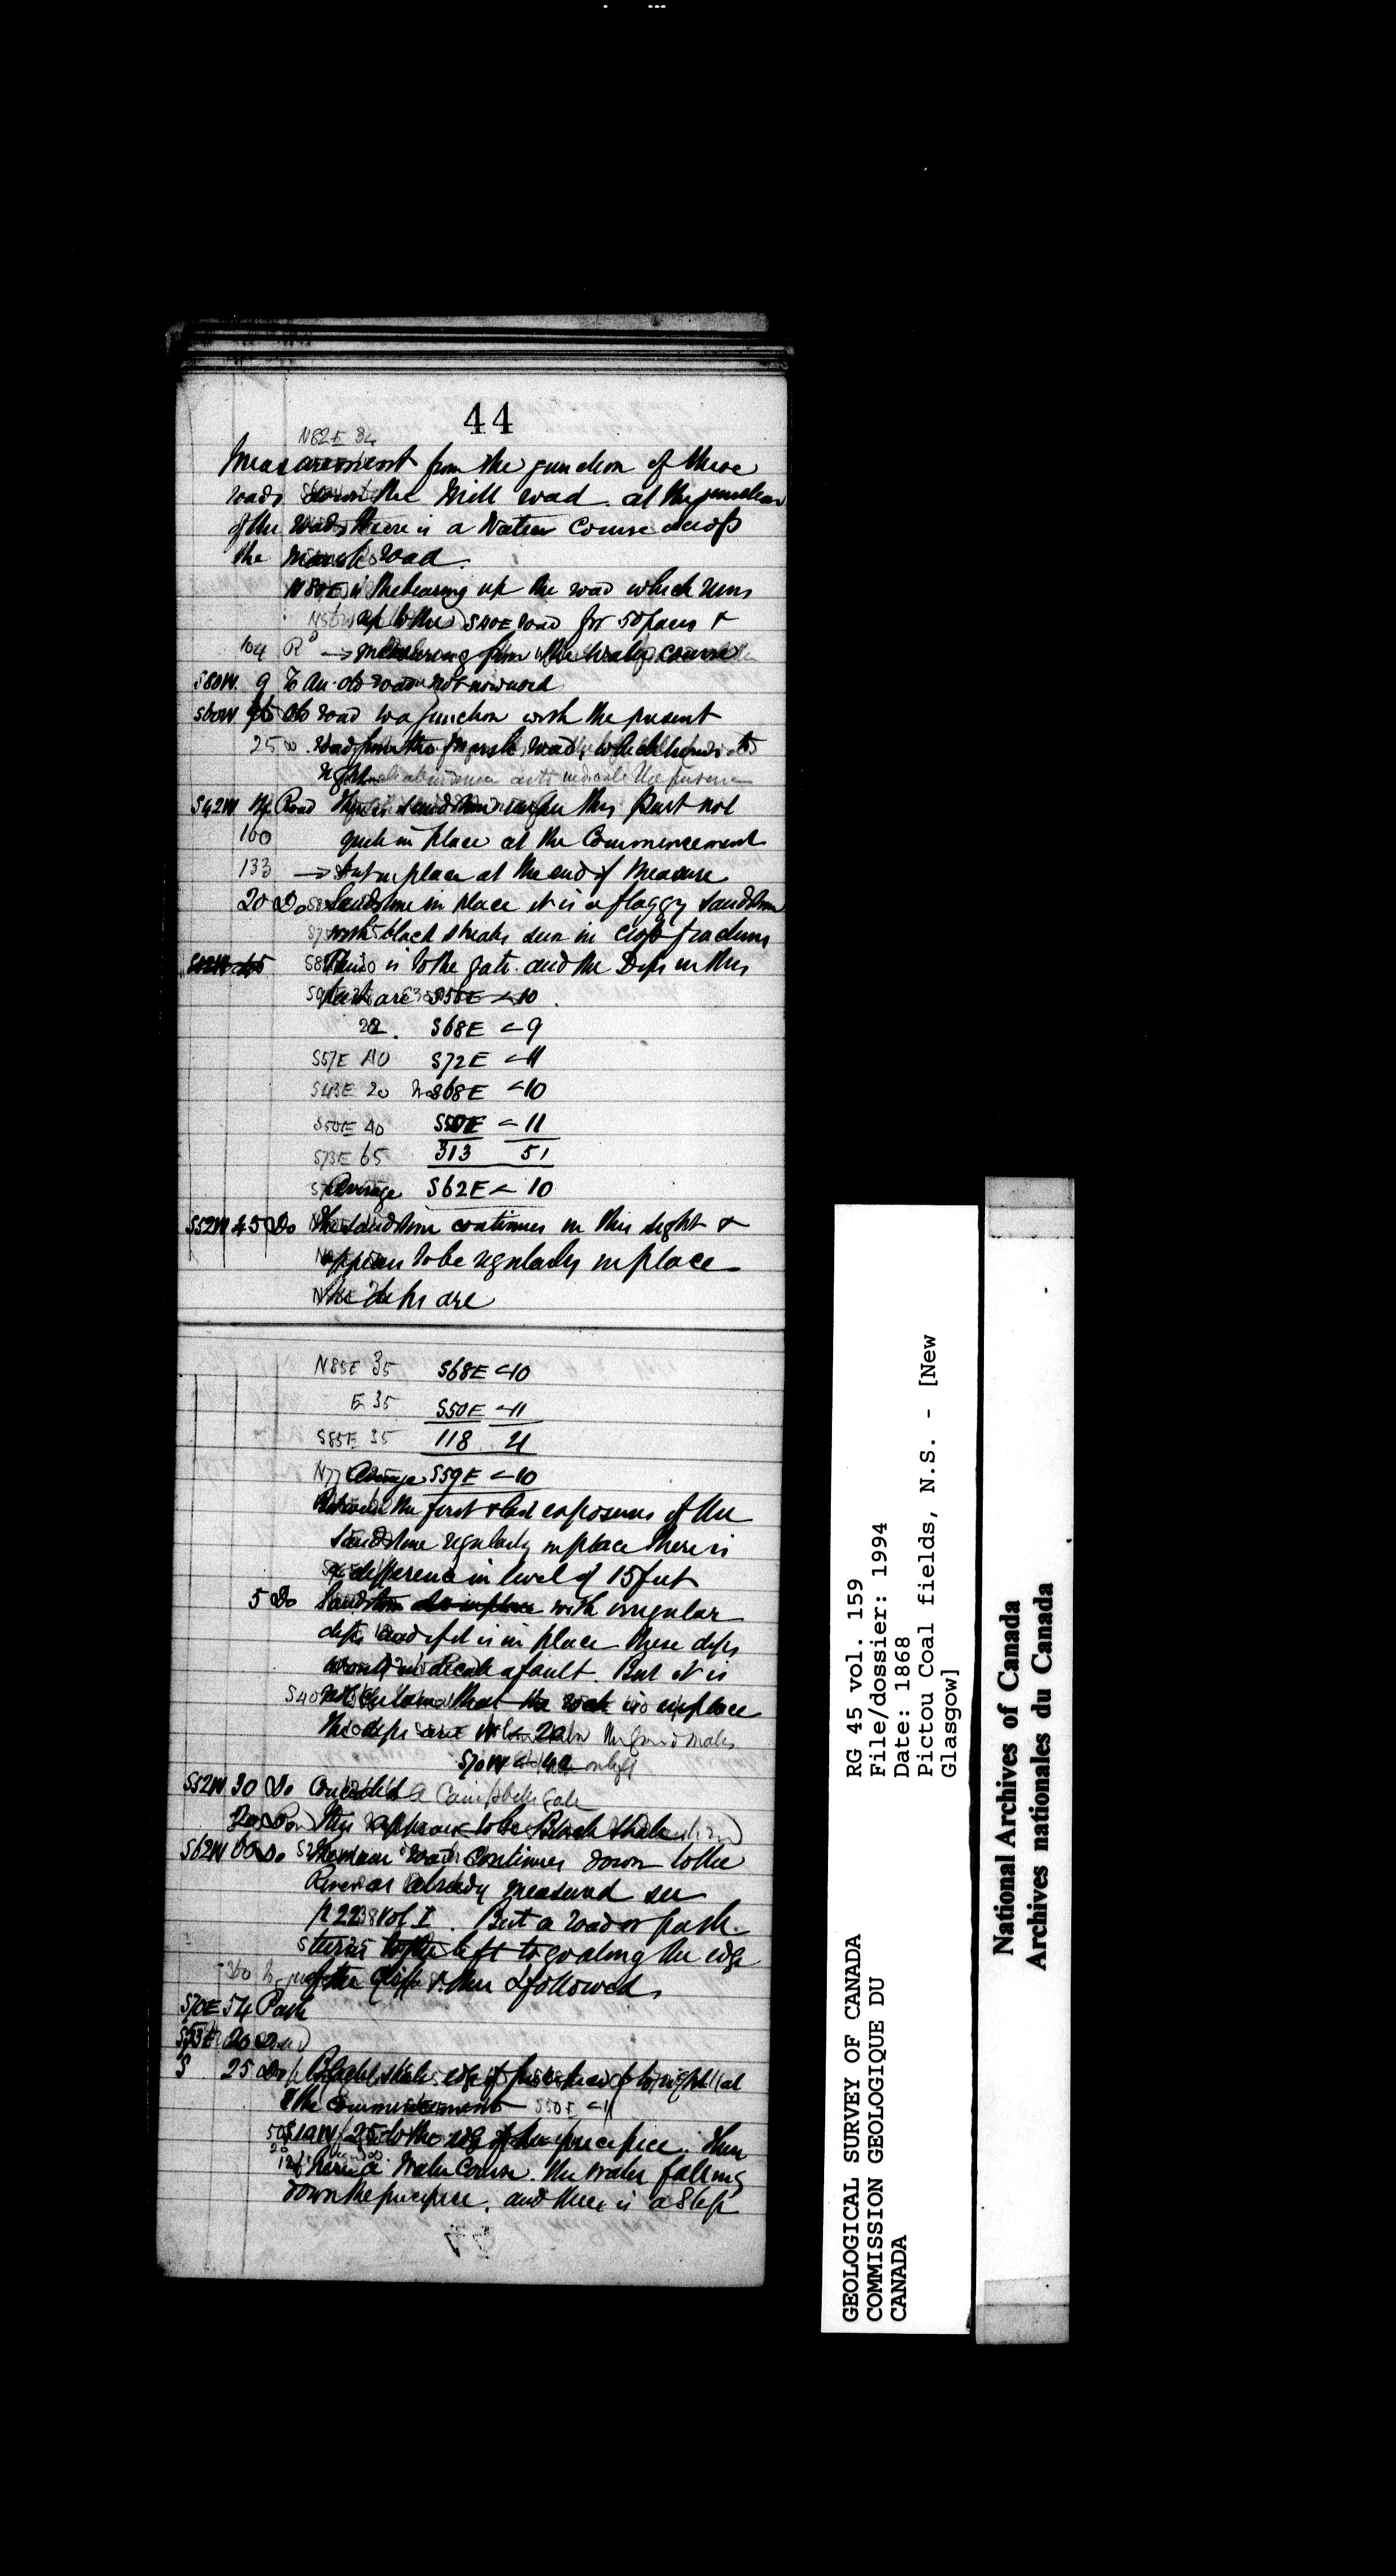 44
N82E 34
Measurement from the junction of three
roads down the Mill road. at the junction
of the roads there is a Water Course across
the Marsh road.
N80E is the bearing up the road which runs
up to the S40E road for 50 paces &
104 Rd → measuring from the water course
S80W. 9 To an old road not now used
S60W Old road to a junction with the present
25 Do road from the Marsh road, which turns to
right
S42W Rd Road There is sandstone in this part not
100 quite in place at the Commencement
133 → but in place at the end of Measure
20 Do Sandstone in place it is a flaggy sandstone
with black streaks seen in cross fractures
This is to the gate. and the Dips in this
part are S55E < 10
22. S68E < 9
S57E 110 S72E < 11
S43E 20 S68E < 10
S50E 40 S50E < 11
S73E 65 313 51
Average S62E < 10
S52W 45 Do The sandstone continues in this sight &
appears to be regularly in place
The dips are
N85E 35 S68E < 10
E 35 S50E < 11
S85E 35 118 21
N77 Average S59E < 10
Between the first & last exposures of the
Sandstone regularly in place there is
a difference in level of 15 feet
5 Do Sandstone do in place with irregular
dips and if it is in place these dips
would indicate a fault. But it is
not certain that the rock is in place
The dips are W < 20
S70W < 42
S52W 30 Do Concealed
Campbells Gate
20 Do this appears to be Black shale
S62W 60 Do The main road continues down to the
River as already measured see
p 223 Vol I. But a road or path
turns to the left to go along the edge
of the cliff & this I followed
S70E 54 Path
S53E 20 Do
S 25 Do Black shale edge of precipice to right at
the commencement S50E < 11
S10W 25 to the edge of the precipice. Then
here is a Water Course. the water falling
down the precipice. and there is a Step
RG 45 vol. 159
File/dossier: 1994
Date: 1868
Pictou Coal fields, N.S. - [New
Glasgow]
GEOLOGICAL SURVEY OF CANADA
COMMISSION GEOLOGIQUE DU
CANADA
National Archives of Canada
Archives nationales du Canada